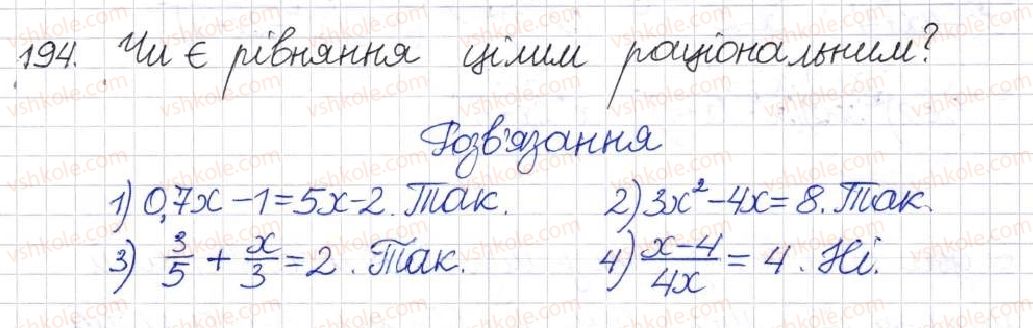 194. Чи є рівняння цілим раціональним?
Розв'язання
1) 0,7x - 1 = 5x - 2. Так. 2) 3x² - 4x = 8. Так.
3) 3/5 + x/3 = 2. Так. 4) (x-4)/4x = 4. Ні.
vshkole.com